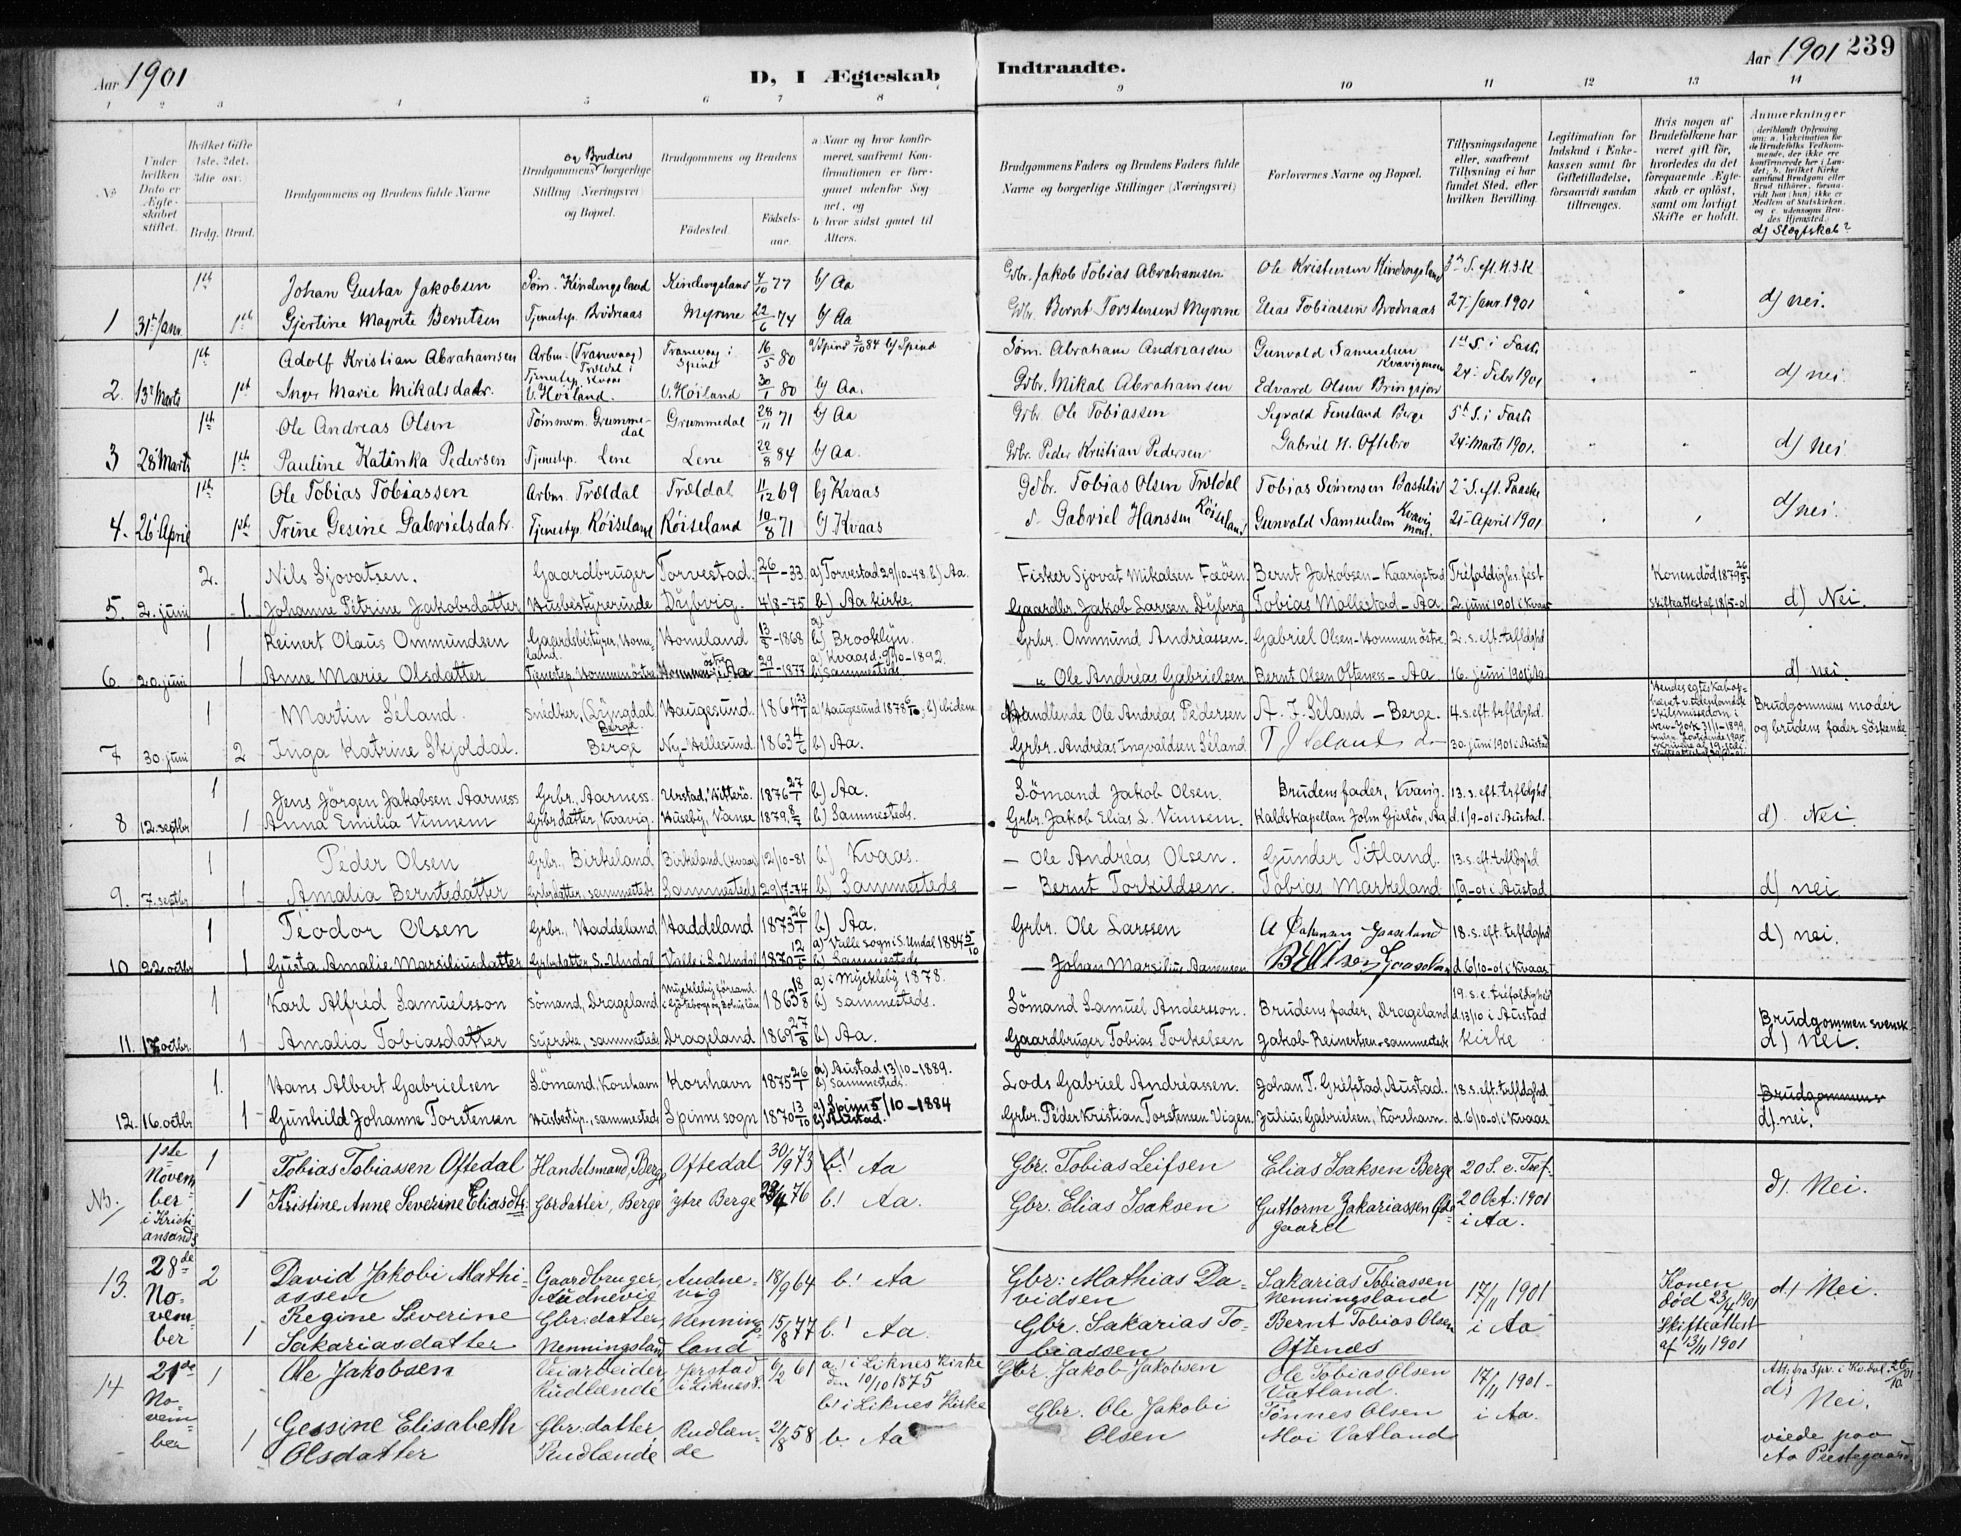 Aar 1901
D, I Ægteskab
Indtraadte.
Aar 1901 239
1 2 3 4 5 6 7 8 9 10 11 12 13 14
No
Under hvilken Dato er Ægteskabet stiftet.
Hvilket Gifte 1ste, 2det, 3die osv.
Brdg. Brud.
Brudgommens og Brudens fulde Navne
Brudgommens og Brudens borgerlige Stilling (Næringsvei) og Bopæl.
Brudgommens og Brudens
Fødested. Fødselsaar.
a) Naar og hvor konfirmeret, saafremt Konfirmationen er foregaaet udenfor Sognet, og b) hvor sidst gaaet til Alters.
Brudgommens Faders og Brudens Faders fulde Navne og borgerlige Stillinger (Næringsvei)
Forlovernes Navne og Bopæl.
Tillysningsdagene eller, saafremt Tillysning ei har fundet Sted, efter hvilken Bevilling.
Legitimation for Indskud i Enkekassen samt for Giftetilladelse, forsaavidt saadan tiltrænges.
Hvis nogen af Brudefolkene har været gift før, hvorledes da det foregaaende Ægteskab er opløst, samt om lovligt Skifte er holdt.
Anmærkninger
d) Slægtskab?
1st Johan Gustav Jakobsen Søm. Kindingsland Kindingsland 4/10 77 b) Aa Gbr. Jakob Tobias Abrahamsen Ole Kristensen Kindingsland 3die S. eft. H.3.K
1 31te Janr 1st Gjertine Magrete Berntsen Tjenestep. Brødnaas Myrene 22/6 74 b) Aa Gbr. Bernt Torstensen Myrene Elias Tobiassen Brødnaas 27. Janr. 1901 " " d) nei.
1st Adolf Kristian Abrahamsen Arbm. (Tranevaag) Trældal i Kvaas Tranevaag i Spind 16/5 80 a) Spind 5/10 84 b) Spind Søm. Abraham Andreassen Gunvald Samuelsen Kvavigmoen 1st S. i Faste
2. 13de Marts 1st Inger Marie Mikalsdatr. Tjenestep. V. Høiland. V. Høiland 30/1 80 b) Aa. Gbr. Mikal Abrahamsen Edvard Olsen Bringsjor 24. Febr 1901 " " d) nei
1st Ole Andreas Olsen Tømmerm. Grummedal Grummedal 28/11 71 b) Aa Gbr Ole Tobiassen Segvald Fensland Berge 5te S. i Faste
3 28 Marts 1ste Pauline Katinka Pedersen Tjenestep. Lene Lene 22/8 84 b) Aa. Gbr. Peder Kristian Pedersen Gabriel H. Oftebro 24. Marts 1901. " " d) nei.
1st Ole Tobias Tobiassen Arbm. Trældal Trældal 11/12 69 b) Kvaas Gdbr. Tobias Olsen Trældal Tobias Sørensen Bastelid 2 S. eft. Paaske
4. 26 April 1st. Trine Gesine Gabrielsdatr. Tjenestep. Røiseland Røiseland 10/8 71 b) Kvaas d. Gabriel Hanssen Røiseland Gunvald Samuelsen Kvavigmoen. 21. April 1901. d) nei.
2. Nils Sjovatsen. Gaardbruger Torvestad. 26/1 - 33. a) Torvestad 29/10-48. b) Aa. Fisker Sjovat Mikalsen Fæøen. Bernt Jakobsen - Kaarigstad Trefoldighs. fest Konen død 1879 26/5.
5. 2. juni 1. Johanne Petrine Jakobsdatter Husbestyrerinde Dybvig. 4/8-75 b) Aa kirke. Gaardbr. Jakob Larsen Dybvig Tobias Møllestad - Aa. 2. juni 1901 i Kvaas Skifteattest af 18/5-01 d) Nei.
1 Reinert Olaus Ommundsen Gaardbestyrer, Homeland. Homeland 13/8-1868 a) b) Brooklyn. Grbr. Ommund Andréassen. Gabriel Olsen - Hommen østre. 2. s. eft. trfldghd.
6. 20. juni 1 Anne Marie Olsdatter Tjenestep. Hommen østre Hommen østre i Aa 29/11-1877 a) Kvaas d. 9/10-1892. b) Sammesteds. " Ole Andreas Gabrielsen Bernt Olsen Ofteness - Aa 16. juni 1901 i Aa d) nei.
1 Martin Séland. Snedker, (Lyngdal) Berge. Haugesund. 1864 a) Haugesund 1878 6/10, b) ibidem Handlende Ole Andreas Pedersen A. F. Séland - Berge. 4. s. eft. trfldghd. Brudgommens moder og brudens fader søskende.
7 30. juni 2 Inga Katrine Skjoldal. Berge Ny-Hellesund. 1863 4/6 b) Aa. Grbr. Andreas Ingvaldsen Séland 30. juni 1901 i Austad
1 Jens Jörgen Jakobsen Aarness Grbr., Aarness. Urstad, Hitterö. 1876 27/1 b) Aa. Sömand Jakob Olsen. Brudens fader, Kvavig. 13. s. eft. trfldghd.
8 12. septbr 1 Anna Emilia Vinnem Grbrdatter, Kvavig. Huseby, Vanse 1879. 8/7 b) Sammesteds. Grbr. Jakob Elias L. Vinnem. Kaldskapellan John Gjerløv, Aa d. 1/9-01 i Austad. d). Nei.
1 Peder Olsen Grbr. Birkeland Birkeland (Kvaas) 12/10-81 b) Kvaas. — Ole Andréas Olsen. Gunder Titland. 13. s. eft. trfldghd
9. 7. septbr 1 Amalia Berntsdatter Grbrdatter, sammesteds Sammesteds 29/7-74 b) Sammesteds — Bernt Torkildsen. Tobias Markeland 1/9-01 i Austad d) nei.
1 Teodor Olsen Grbr., Haddeland Haddeland 1873 26/1 b) Aa. Grbr. Ole Larssen 18. s. eft. trfldghd d) nei.
10 22. octbr 1 Gusta Amalie Marsiliusdatter Grbrdatter S.-Undal Valle i S. Undal 1870 12/8 a) Valle sogn i S. Undal 1884 5/10 b) Sammesteds — Johan Marsilius Aanensen d. 6/10-01 i Kvaas
1 Karl Alfréd Samuelsson Sömand, Drageland 1863 18/8 a) i Myckleby 1878. b) sammesteds. Sömand Samuel Andersson. Brudens fader, Drageland 19. s. e. trefoldighed d. 13/10 i Austad kirke Brudgommen svensk.
11. 17 octbr. 1 Amalia Tobiasdatter Syerske, sammesteds Drageland 1869 27/8 b) Aa. Gaardbruger Tobias Torkelsen Jakob Reinertsen - sammesteds d) nei.
1. Hans Albert Gabrielsen Sömand, Korshavn Korshavn 1875 26/1 a) Austad 13/10-1889. b) Sammesteds. Lods Gabriel Andréassen. Johan T. Grefstad, Austad. 18. s. eft. trfldghd. Brudgommens
12. 16. octbr 1 Gunhild Johanne Torstensen Husbestyr., sammesteds Spinns sogn 1870 13/10 a) Spinn 5/10-1884 b) Austad. Grbr. Péder Kristian Torstensen Vigen. Julius Gabrielsen, Korshavn. d. 6/10-01 i Kvaas d) nei.
1ste November i Kristiansand 1 Tobias Tobiassen Oftedal Handelsmand, Berge Oftedal 30/9 73 b! Aa Gbr. Tobias Leifsen Elias Isaksen Berge 20 S. e. Tref.
NB. 1 Kristine Anne Severine Eliasdtr. Gbrdatter, Berge Ytre Berge 76 b! Aa. Gbr. Elias Isaksen Guttorm Zakariassen Ødegaard 20 Oct: 1901 i Aa. d). Nei.
13. 28de November 2 David Jakobi Mathiassen Gaardbruger, Audnevig Audnevig 18/9 64 b! Aa Gbr: Mathias Davidsen Sakarias Tobiassen Nenningsland 17/11 1901 i Aa Konen død 23/4 1901 Skifteattest af 13/11 1901 d) Nei.
1 Regine Severine Sakariasdatter Gbr:datter, Nenningsland Nenningsland 15/8 77 b! Aa. Gbr. Sakarias Tobiassen Bernt Tobias Olsen Oftenes
14 21de November 1 Ole Jakobsen Veiarbeider Rudlænde Jerstad i Liknes S. 6/2 61 a) i Liknes Kirke den 10/10 1875 b! i Liknes Kirke Gbr. Jakob Jakobsen Ole Tobias Olsen Vatland. 17/11 1901 i Aa. d) Nei.
1 Gessine Elisabeth Olsdatter Gbr:datter, Rudlænde Rudlænde 21/8 58 b. Aa Gbr. Ole Jakobi Olsen Tønnes Olsen Moi Vatland viede paa Aa Prestegaard